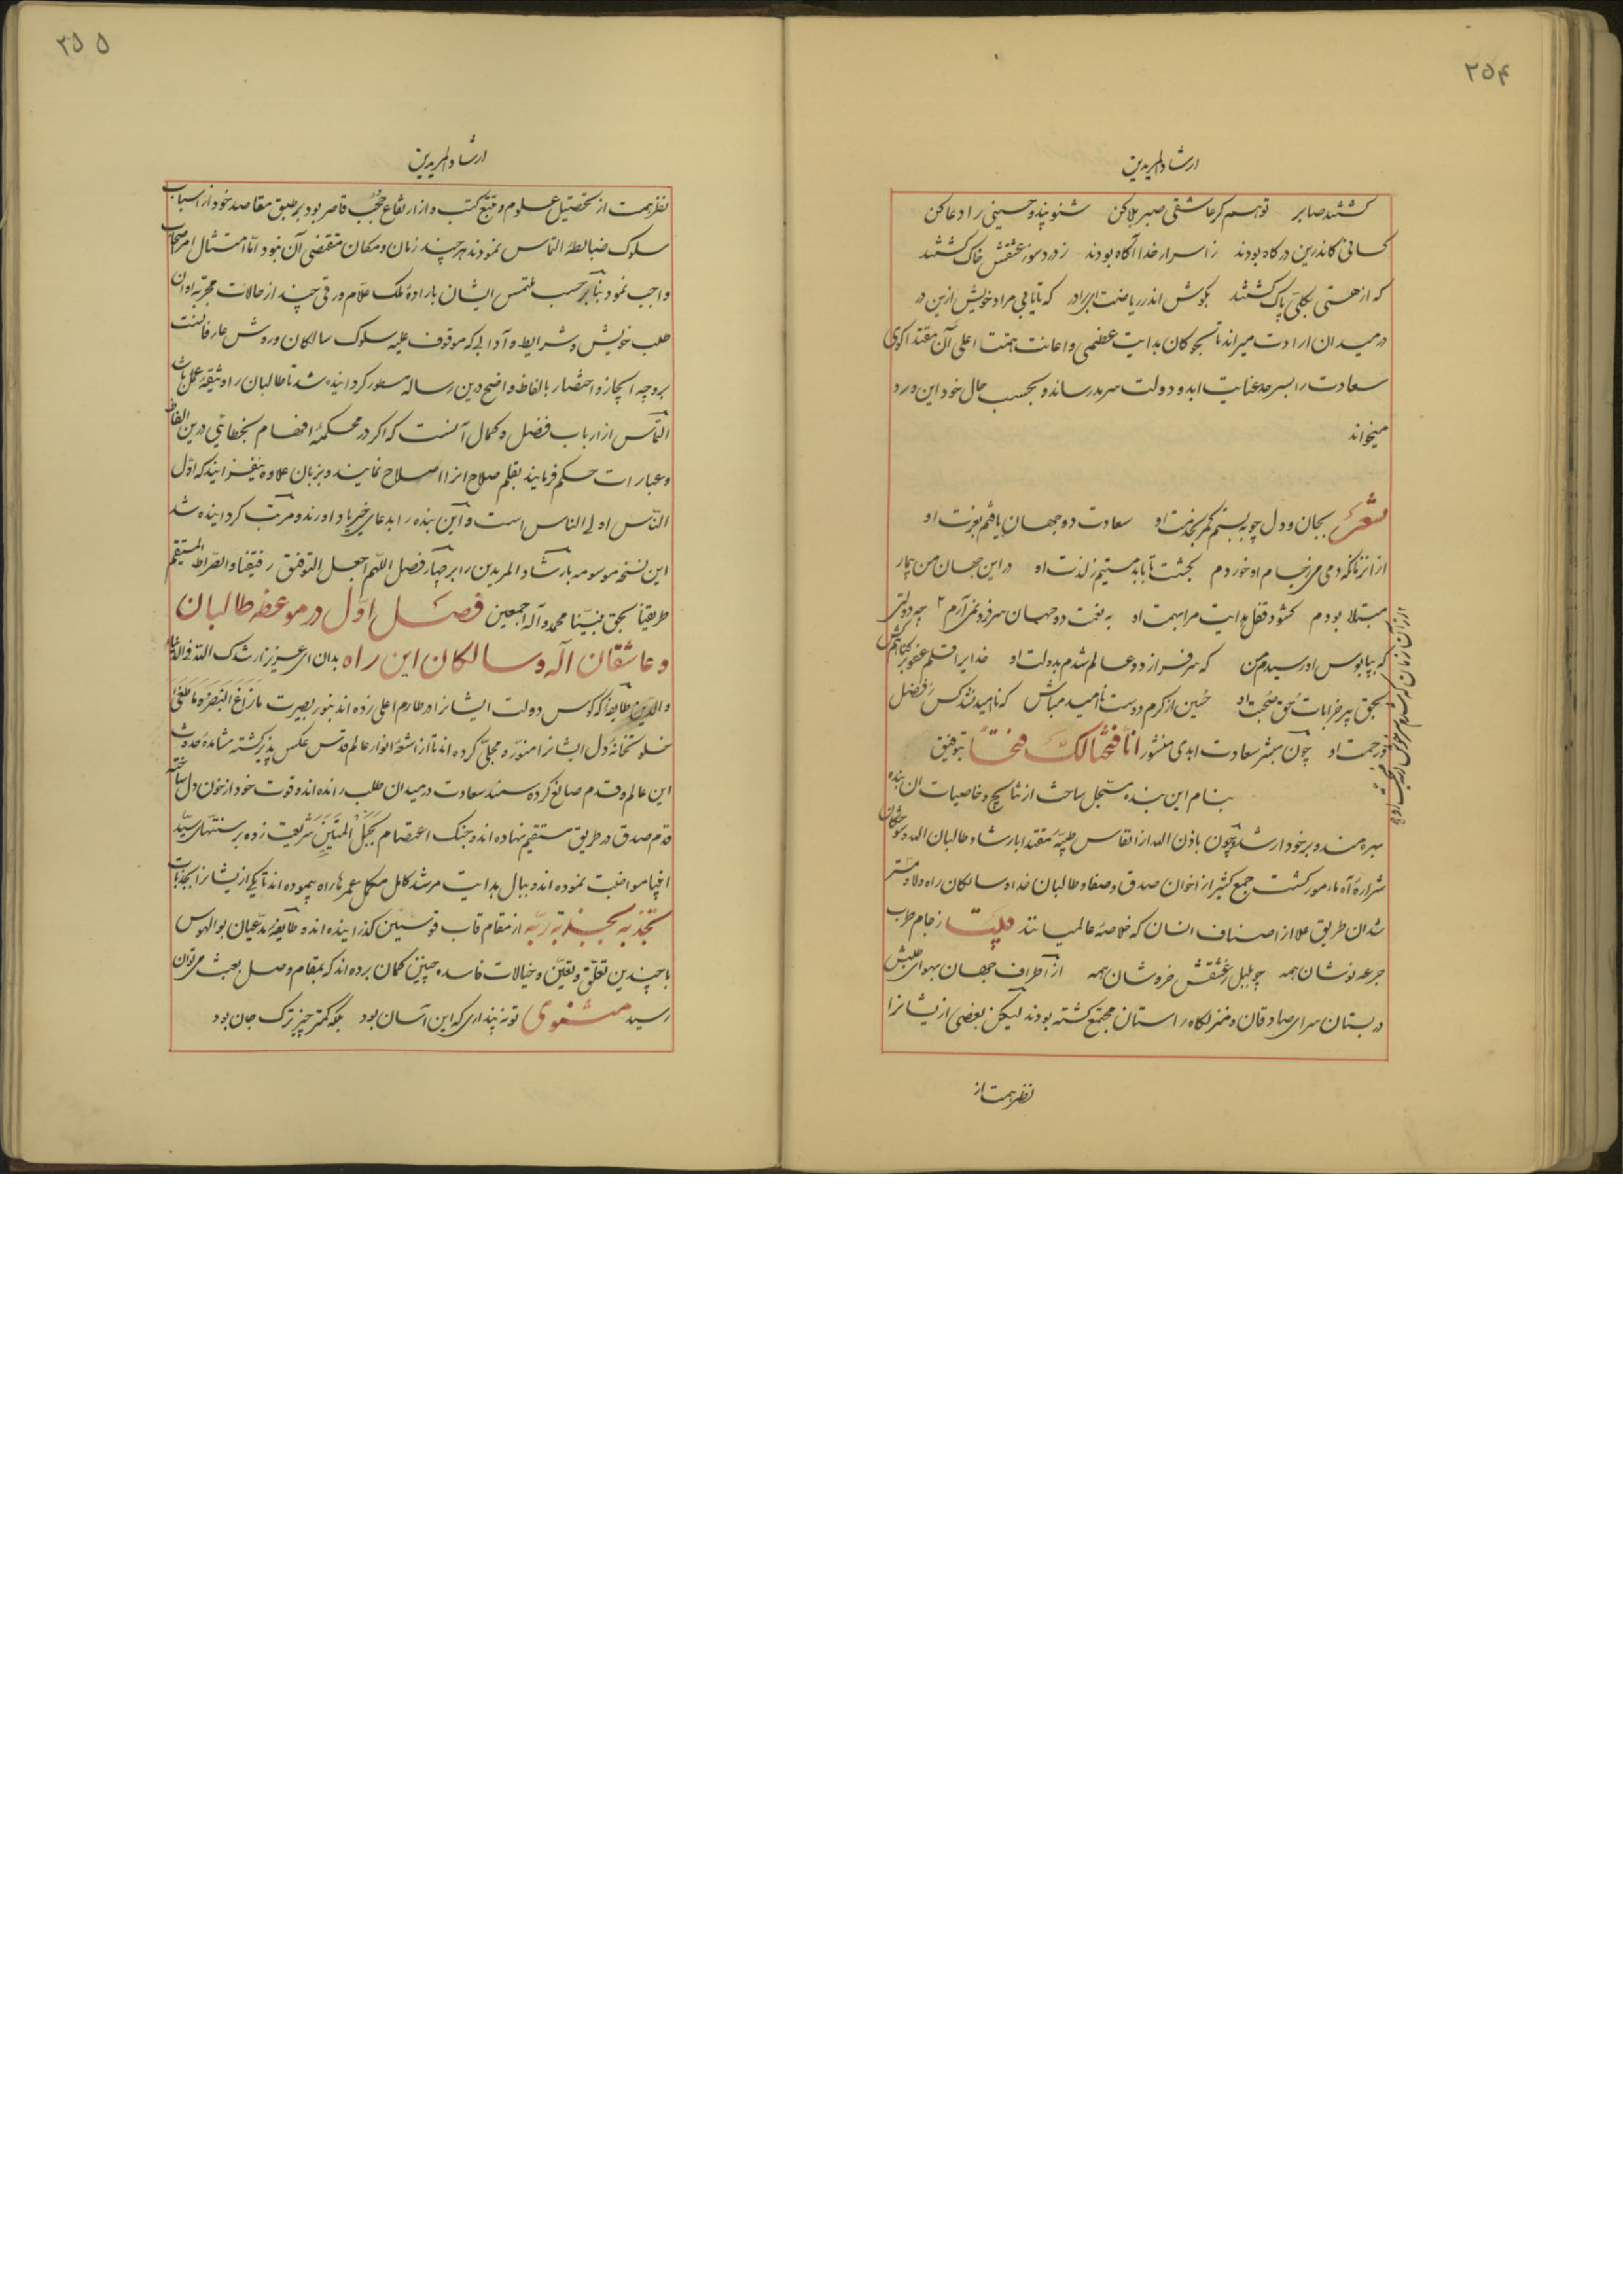 ۲۵۴
ارشاد المریدین
کشتند صابر توهم کر عاشقی صبر بلا کن شنو پند و حسینی را دعا کن
کسانی کاندرین درکاه بودند ز اسرار خدا آکاه بودند ز درد سوز عشقش خاک کشتند
که از هستی بکلی پاک کشتند بکوش اندر ریاضت ای برادر که تا یابی مراد خویش ازین در
در میدان ارادت میراند تا بجوکان بدایت عظمی و اعانت همت اعلی آن مقتدا کوی
سعادت را بسرحد عنایت ابد و دولت سرمد رساند و بحسب حال خود این ورد
میخواند
شعر بجان و دل چو ببستم کمر بخدمت او سعادت دو جهان یافتم بعزت او
از انزمانکه دمی می ز جام او خوردم بجنت تا بابد مستیم ز لذت او در این جهان من بیمار
مبتلا بودم کشود قفل هدایت مرا بهمت او به نعمت دو جهان سر فرو نمی آرم چه دولتی
که بپابوس او رسیدم من که سرفراز دو عالم شدم بدولت او خدایرا قلم عفو بر کناهم کش
بحق پیر خرابات حق صحبت او حسین از کرم دوست ناامید مباش که ناامید نشد کس ز فضل
و ز رحمت او چون مبشر سعادت ابدی منشور انا فتحنا لک فتحا بتوفیق
بنام این بنده مسجل ساخت از نتایج و خاصیات ان بنده
بهره مند و برخودار شد و چون باذن الله از انفاس طیبه مقتدا بارشاد طالبان الله و سوختکان
شراره آه مامور کشت جمع کثیر از اخوان صدق و صفا و طالبان خدا و سالکان راه ولا و مستر
شدان طریق علا از اصناف انسان که خلاصه عالمیانند بیت ز جام طرب
جرعه نوشان همه چو بلبل ز عشقش خروشان همه از اطراف جهان بهوای طلبش
در بستان سرای صادقان و منزلکاه راستان مجتمع کشته بودند لیکن بعضی از یشانرا
نظر همت از
۲۵۵
ارشاد المریدین
نظر همت از تحصیل علوم و تتبع کتب و از ارتفاع حجب قاصر بود بر طبق مقاصد خود از اسباب
سلوک ضابطه التماس نمودند هر چند زمان و مکان مقتضی آن نبود اما امتثال امر صحاب
واجب نمود بنابر حسب ملتمس ایشان باراده ملک علام ورقی چند از حالات مجربه اوان
طلب خویش و شرایط و آدابی که موقوف علیه سلوک سالکان و روش عارفانست
بر وجه ایجاز و اختصار بالفاظ واضح درین رساله مسطور کردانیده شد تا طالبان را وثیقه عمل باشد
التماس از ارباب فضل و کمال آنست که اکر در محکمه افهام بخطایی درین الفاظ
و عبارات حکم فرمایند بقلم صلاح انرا اصلاح نمایند و بزبان علاوه نیفزایند که اول
الناس اولی الناس است و این بنده را بدعای خیر یاد اورند و مرتب کردانیده شد
این نسخه موسومه بارشاد المریدین را بر چهار فصل اللهم اجعل التوفیق رفیقنا و الصراط المستقیم
طریقنا بحق نبینا محمد و آله اجمعین فصل اول در موعظه طالبان
و عاشقان آله و سالکان این راه بدان ای عزیز ارشدک الله فی الدنیا
والدین طایفه که کوس دولت ایشانرا در طارم اعلی زده اند بنور بصیرت ما زاغ البصر و ما طغی
خلوتخانه دل ایشانرا منوره مجلی کرده اند تا از اشعه انوار عالم قدس عکس پذیر کشته مشاهده حدوث
این عالم و قدم صانع کرده سمند سعادت در میدان طلب رانده اند و قوت خود از خون دل ساخته
قدم صدق در طریق مستقیم نهاده اند و چنک اعتصام بحبل المتین شریعت زده بر سنتهای سید
انبیا مواظبت نموده اند و ببال هدایت مرشد کامل مکمل عمرها راه پیموده اند تا یکی از یشانرا بجذبات
تجذبه بجذبة ربه از مقام قاب قوسین کذرانیده اند و طایفه مدعیان بوالهوس
با چندین تعلق و تعین و خیالات فاسد چنین کمان برده اند که بمقام وصل بعبث می توان
رسید مثنوی تو نه پنداری که این آسان بود بلکه کمتر چیز ترک جان بود